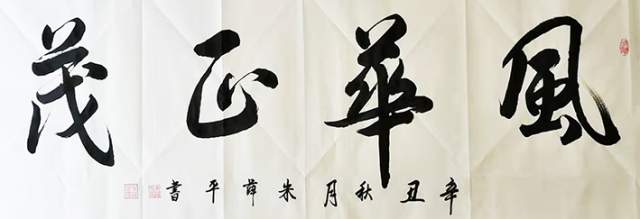 風華正茂
辛丑秋月朱韓平書